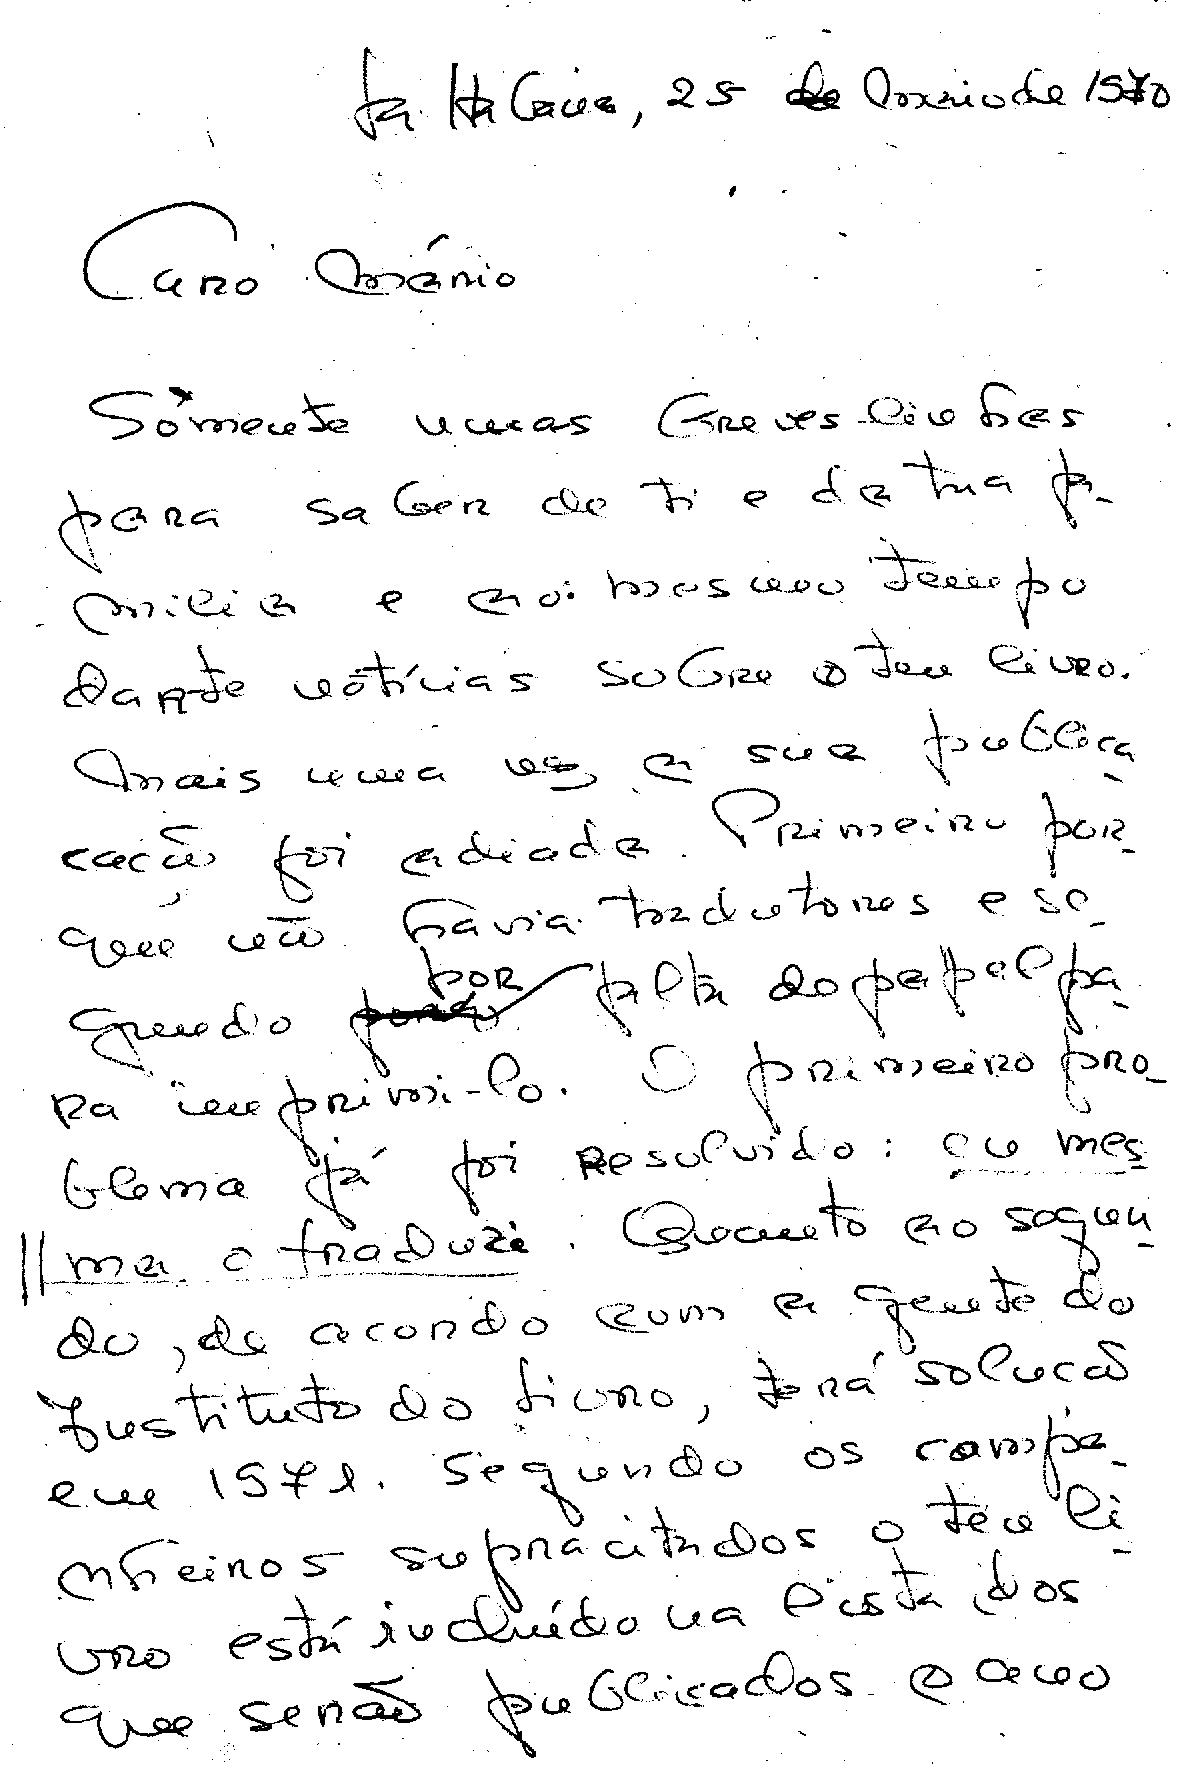 La Habana, 25 de maio de 1970
Caro Mário
Sòmente umas breves linhas
para saber de ti e da tua fa-
milia e ao mesmo tempo
dar-te notícias sobre o teu livro.
Mais uma vez, a sua publica
cação foi adiada. Primeiro por-
que não havia tradutores e se-
gundo por falta de papel pa-
ra imprimi-lo. O primeiro pro-
blema já foi resolvido: eu mes
ma o traduzi. Quanto ao segun-
do, de acordo com a gente do
Instituto do Livro, terá solucão
em 1971. Segundo os compa-
nheiros supracitados o teu li-
vro está incluído na lista dos
que serão publicados o ano